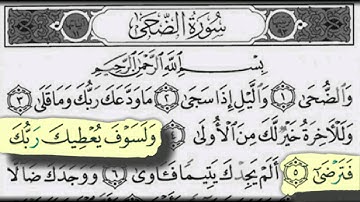 سُورَةُ الضُّحَىٰ
بِسْمِ اللَّهِ الرَّحْمَٰنِ الرَّحِيمِ
وَالضُّحَىٰ ١ وَاللَّيْلِ إِذَا سَجَىٰ ٢ مَا وَدَّعَكَ رَبُّكَ وَمَا قَلَىٰ ٣
وَلَلْآخِرَةُ خَيْرٌ لَّكَ مِنَ الْأُولَىٰ ٤ وَلَسَوْفَ يُعْطِيكَ رَبُّكَ
فَتَرْضَىٰ ٥ أَلَمْ يَجِدْكَ يَتِيمًا فَآوَىٰ ٦ وَوَجَدَكَ ضَالًّا